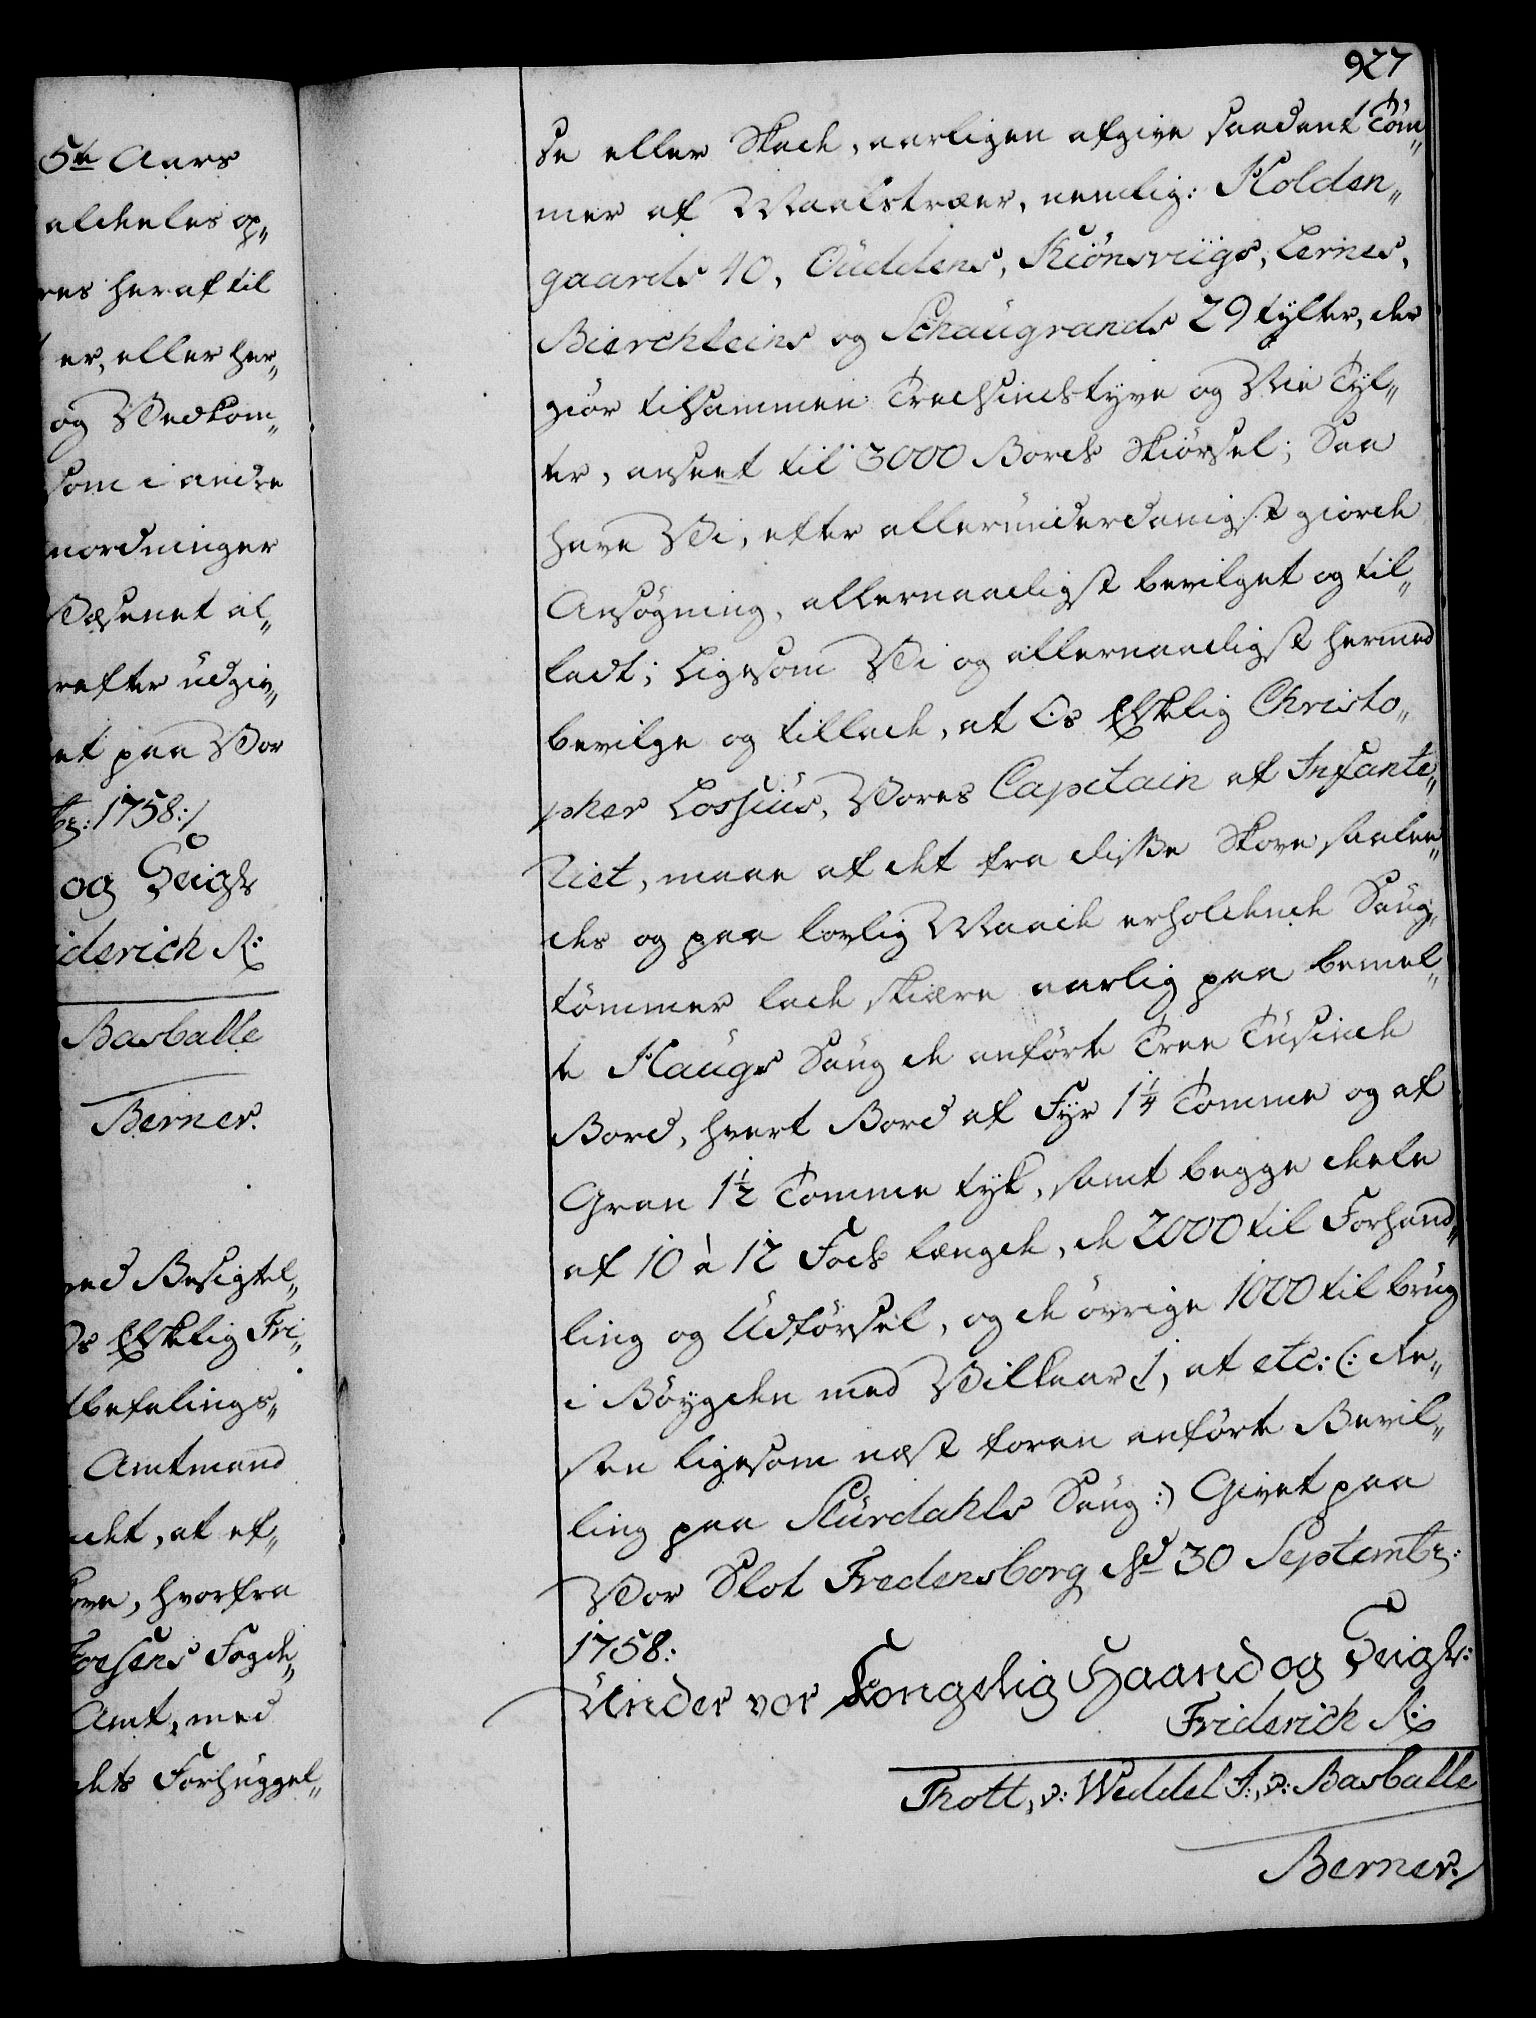 5te Aars
aldeeles op„
res heraf til
er, eller her„
og Vedkom„
som i andre
nordninger
Væsenet al„
refter udgiv„
et paa Vor
br: 1758:/
og Seigl
iderich R:
Basballe
Berner.
ved Besigtel„
Os Elskelig Fri„
befalings„
Amtmand
adt, at ef„
ove, hvorfra
Foesens Fogde„
Amt, med
dets Forhuggel„
927
se eller Skade, aarligen afgive saadant Töm„
mer af Maalstræer, nemlig: Holden„
gaards 40, Öuddens, Kiönsviigs, Lernes,
Bierchleins og Schaugrands 29 tylter, der
giör tilsammen Tredsindstyve og Nie Tyl„
ter, anseet til 3000 Bords Skiörsel; Saa
have Vi, efter allerunderdanigst giorde
Ansögning, allernaadigst bevilget og til„
ladt; Ligesom Vi og allernaadigst hermed
bevilge og tillade, at Os Elskelig Christo„
pher Lossius, Vores Capitain af Infante„
riet, maae af det fra disse Skove saale„
des og paa lovlig Maade erholdende Saug„
tömmer lade skiære aarlig paa bemel„
te Haugs Saug de anförte Tree Tusinde
Bord, hvert Bord af Fyr 1¼ Tomme og af
Gran 1½ Tomme tyk, samt begge deele
af 10 à 12 Fods længde, de 2000 til Forhand„
ling og Udförsel, og de övrige 1000 til brug
i Böygden med Vilkaar, at etc: (: Re„
sten ligesom næst foran anförte Bevil„
ling paa Sturdahls Saug :) Givet paa
Vor Slot Fredensborg d. 30 Septembr:
1758:
Under vor Kongelig Haand og Seigl:
Friderich R:
Thott, v: Weddel F:, v: Basballe
Berner.